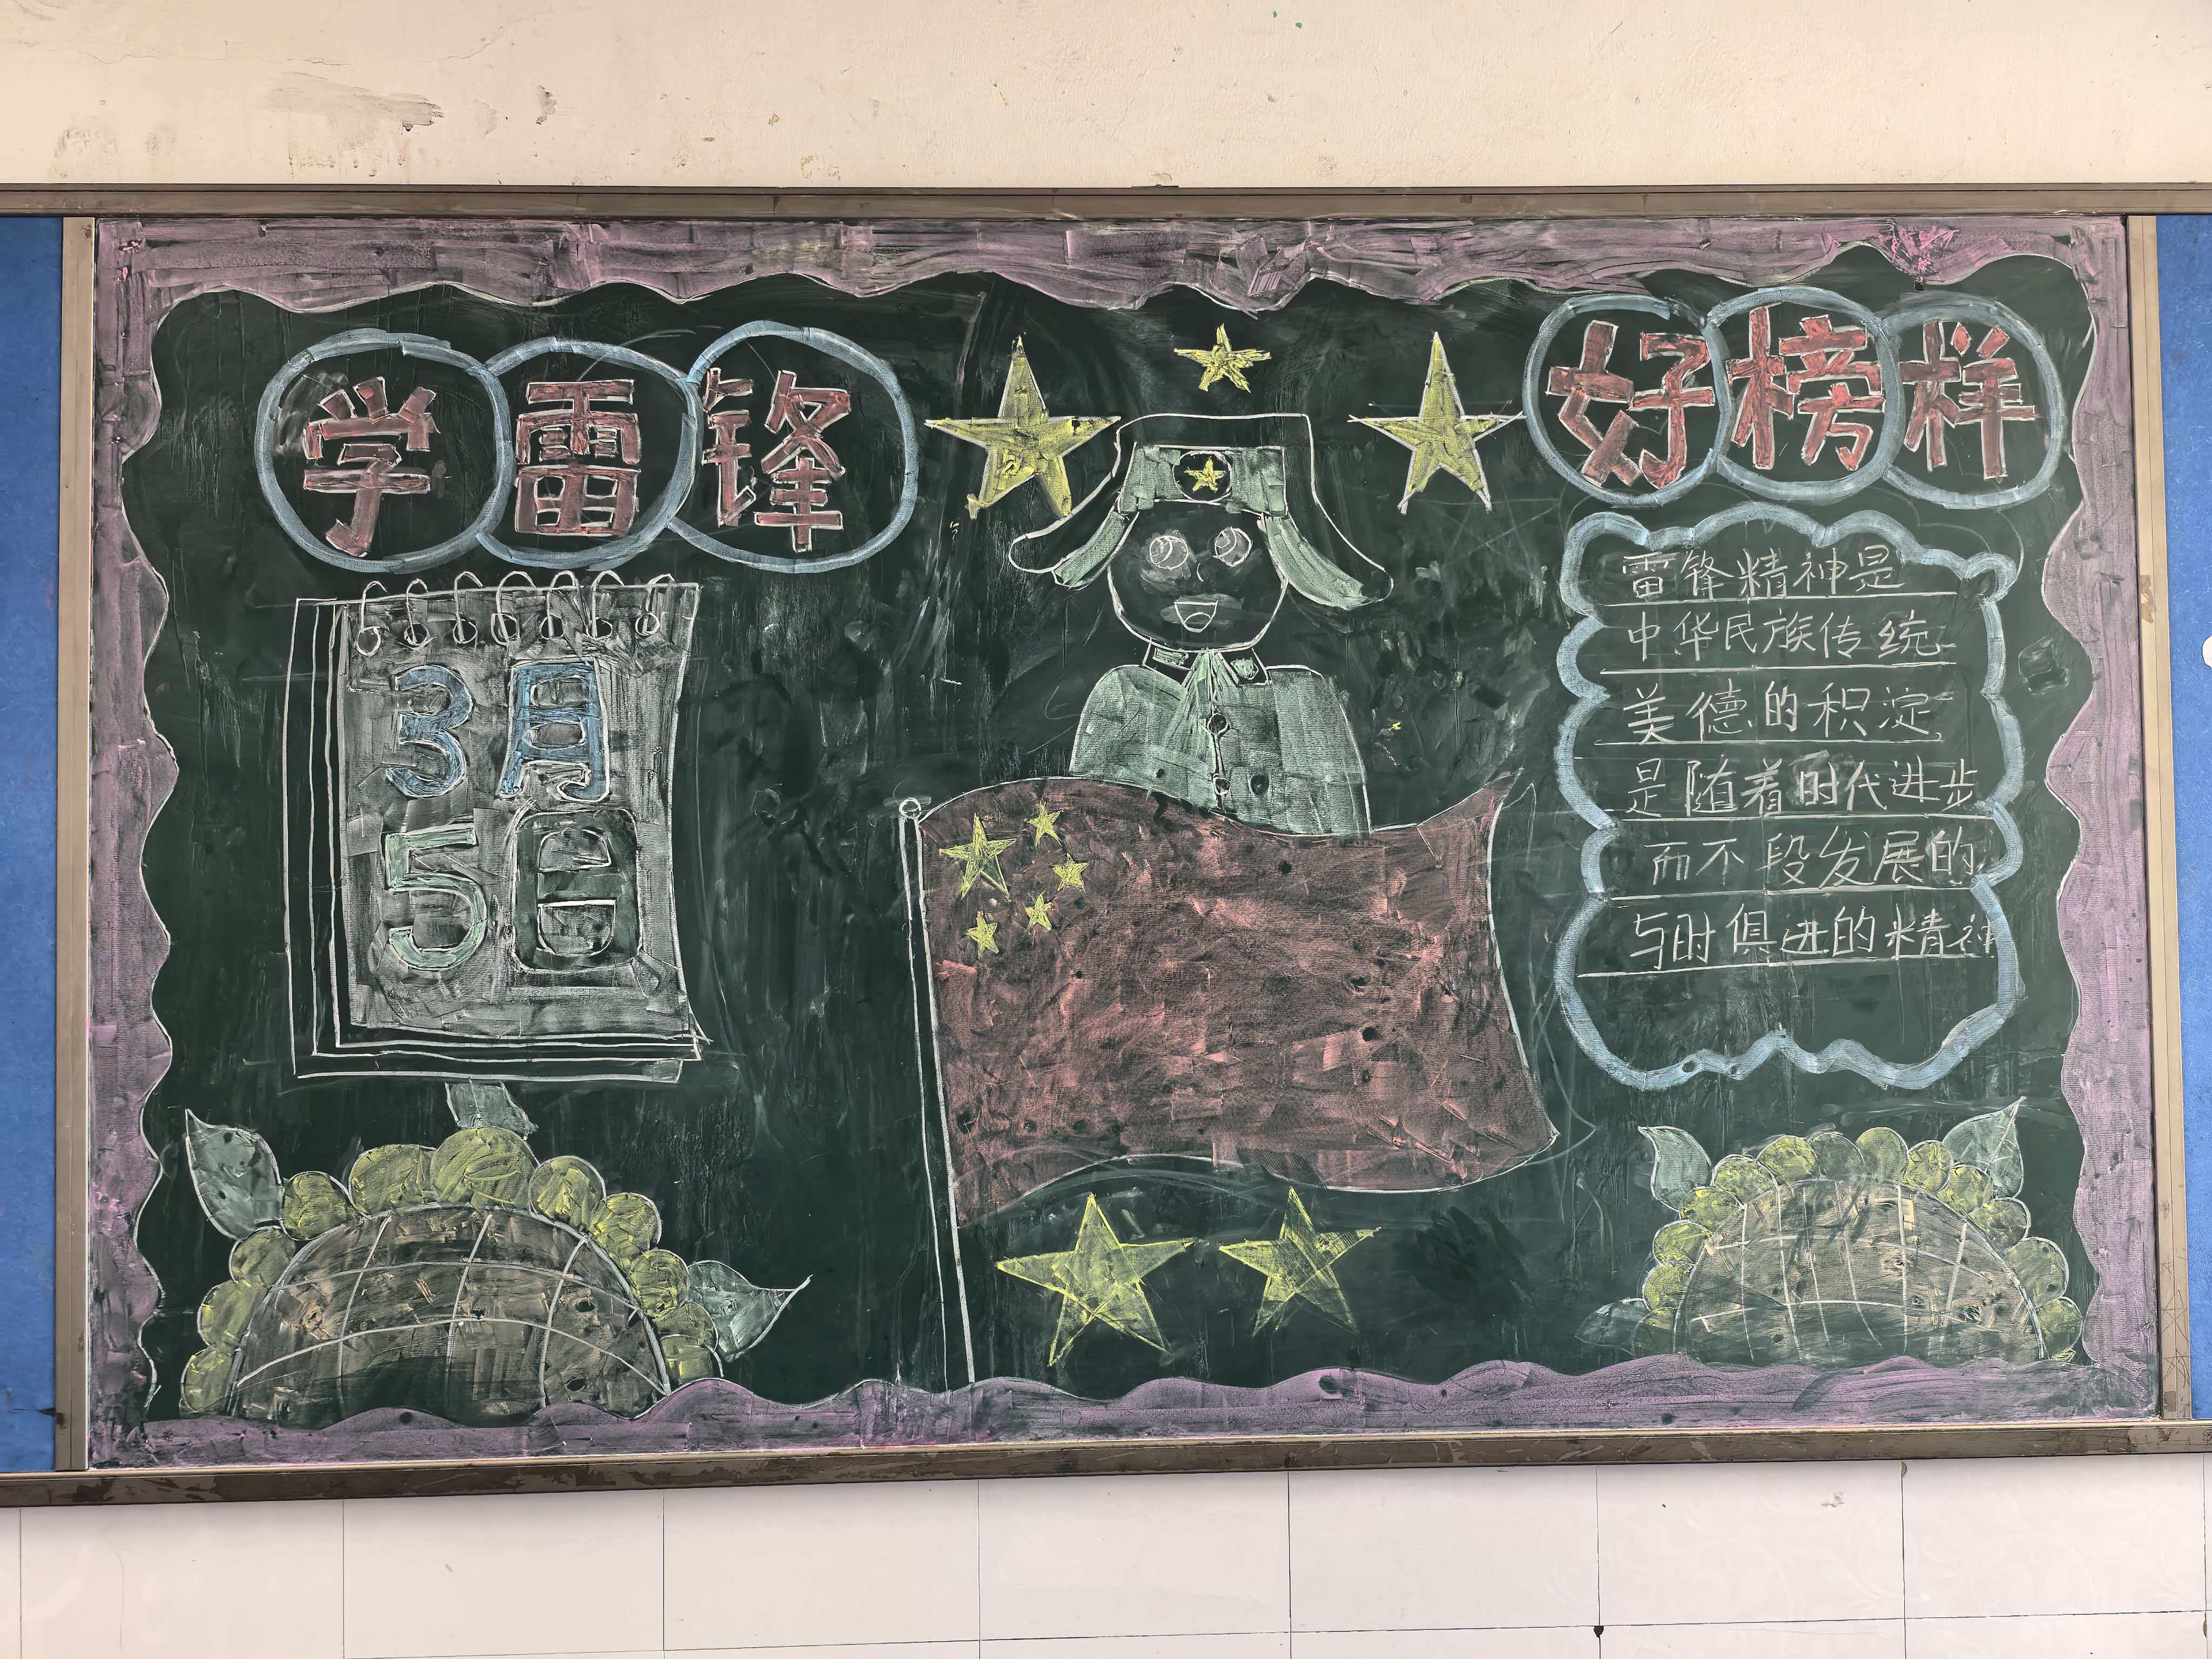 学雷锋
好榜样
3月
5日
雷锋精神是
中华民族传统
美德的积淀,
是随着时代进步
而不段发展的,
与时俱进的精神